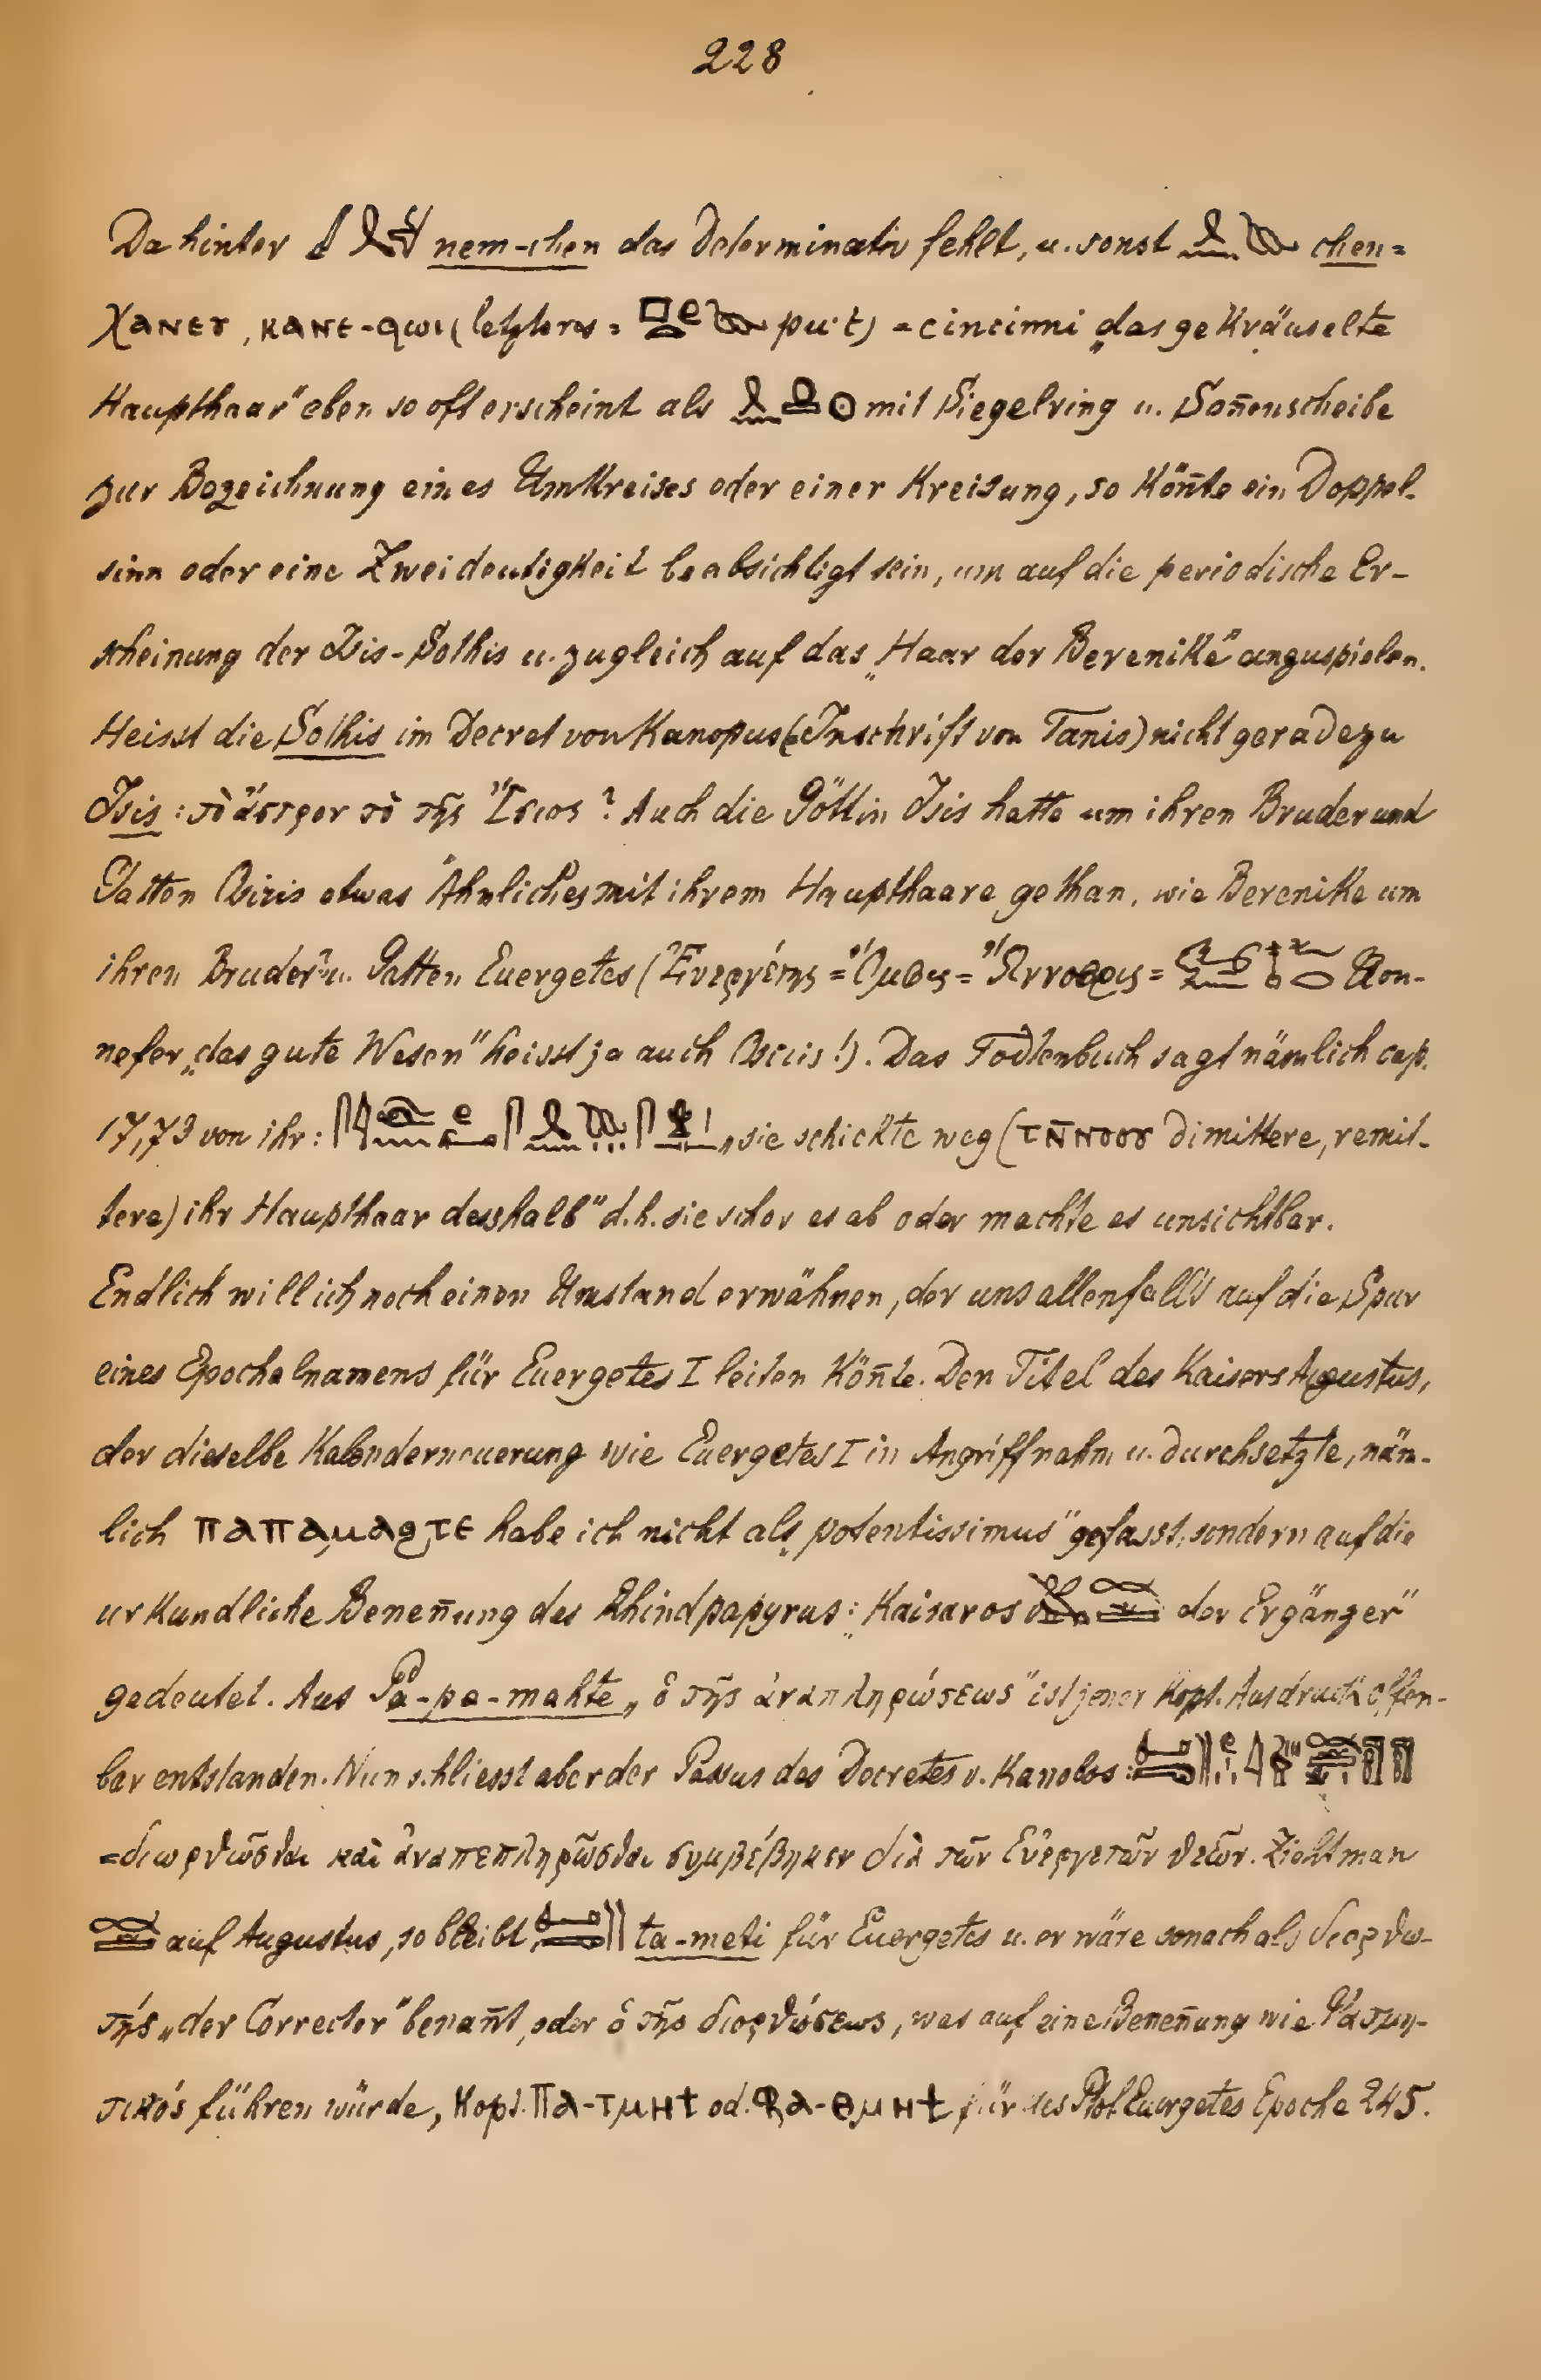 228
Da hinter nem-chen das Determinativ fehlt, u. sonst chen=
ⲭⲁⲛⲉⲩ, ⲕⲁⲛⲉ-ϥⲱⲓ (letzteres = pu·t) = cincinni „das gekräuselte
Haupthaar" eben so oft erscheint als mit Siegelring u. Son̄enscheibe
zur Bezeichnung eines Umkreises oder einer Kreisung, so kön̄te ein Doppel-
sinn oder eine Zweideutigkeit beabsichtigt sein, um auf die periodische Er-
scheinung der Isis-Sothis u. zugleich auf das „Haar der Berenike" anzuspielen.
Heisst die Sothis im Decret von Kanopus (Inschrift von Tanis) nicht geradezu
Isis: τὸ ἄστρον τὸ τῆς Ἴσιος? Auch die Göttin Isis hatte um ihren Bruder und
Gatten Osiris etwas Ähnliches mit ihrem Haupthaare gethan, wie Berenike um
ihren Bruder u. Gatten Euergetes (Εὐεργέτης = Ὄμφις = = Uon-
nefer „das gute Wesen" heisst ja auch Osiris!). Das Todtenbuch sagt nämlich cap.
17,73 von ihr: „sie schickte weg (ⲧⲛ̄ⲛⲟⲟⲩ dimittere, remit-
tere) ihr Haupthaar desshalb" d.h. sie schor es ab oder machte es unsichtbar.
Endlich will ich noch einen Umstand erwähnen, der uns allenfalls auf die Spur
eines Epochalnamens für Euergetes I leiten kön̄te. Den Titel des Kaisers Augustus,
der dieselbe Kalenderneuerung wie Euergetes I in Angriff nahm u. durchsetzte, näm-
lich ⲡⲁⲡⲁⲙⲁϩⲧⲉ habe ich nicht als „potentissimus" gefasst, sondern auf die
urkundliche Benen̄ung des Rhindpapyrus: „Kaisaros der Ergänzer"
gedeutet. Aus Pa-pe-mahte „ὁ τῆς ἀναπληρώσεως" ist jener kopt. Ausdruck offen-
bar entstanden. Nun schliesst aber der Passus des Decretes v. Kanobos:
=διωρθῶσθαι καὶ ἀναπεπληρῶσθαι συμβέβηκεν διὰ τῶν Εὐεργετῶν θεῶν. Zieht man
auf Augustus, so bleibt ta-meti für Euergetes u. er wäre sonach als διορθω-
τής „der Corrector" benan̄t, oder ὁ τῆς διορθώσεως, was auf eine Benen̄ung wie Φατμη-
τικός führen würde, kopt. ⲡⲁ-ⲧⲙⲏϯ od. ⲫⲁ-ⲑⲙⲏϯ für des Ptol. Euergetes Epoche 245.